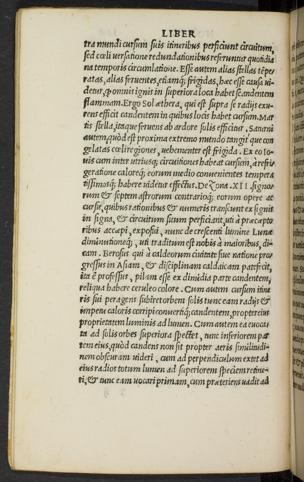 LIBER
tra mundi cursum suis itineribus perficiunt circuitum,
sed cœli versatione redundationibus referuntur quotidia
na temporis circumlatione. Esse autem alias stellas tẽpe
ratas, alias feruentes, etiamq; frigidas, hæc esse causa ui
detur, q omnis ignis in superiora loca habet scandentem
flammam. Ergo Sol æthera, qui est supra se radijs exu-
rens efficit candentem in quibus locis habet cursum. Mar
tis stella, itaque feruens ab ardore solis efficitur. Saturni
autem, quòd est proxima extremo mundo tangit que con
gelatas cœli regiones, uehementer est frigida. Ex eo Io-
uis cum inter utriusq; circuitiones habeat cursum, à refri
geratione caloreq; eorum medio conuenientes tempera
tissimosq; habere uidetur effectus. De Zona .XII. signor
rum & septem astrorum contrarioq; eorum opere ac
cursu, quibus rationibus & numeris transiunt ex signis
in signa, & circuitum suum perficiant, uti à præcepto
ribus accepi, exposui, nunc de crescenti lumine Lunæ
diminutioneq;, uti traditum est nobis à maioribus, di-
cam. Berosus qui à caldeorum ciuitate siue natione pro
gressus in Asiam, & disciplinam caldaicam patefecit,
ita ẽ professus, pilam esse ex dimidia parte candentem,
reliqua habere ceruleo colore. Cum autem cursum itine
ris sui peragens subiret orbem solis tunc eam radijs &
impetu caloris corripi conuertiq; candentem, propter eius
proprietatem luminis ad lumen. Cum autem ea euoca-
ta ad solis orbes superiora spectet, tunc inferiorem par
tem eius, quòd candens non sit propter aeris similitudi-
nem obscuram uideri, cum ad perpendiculum extet ad
eius radios totum lumen ad superiorem speciem retine-
ri, & tunc eam uocari primam, cum præteriens uadit ad